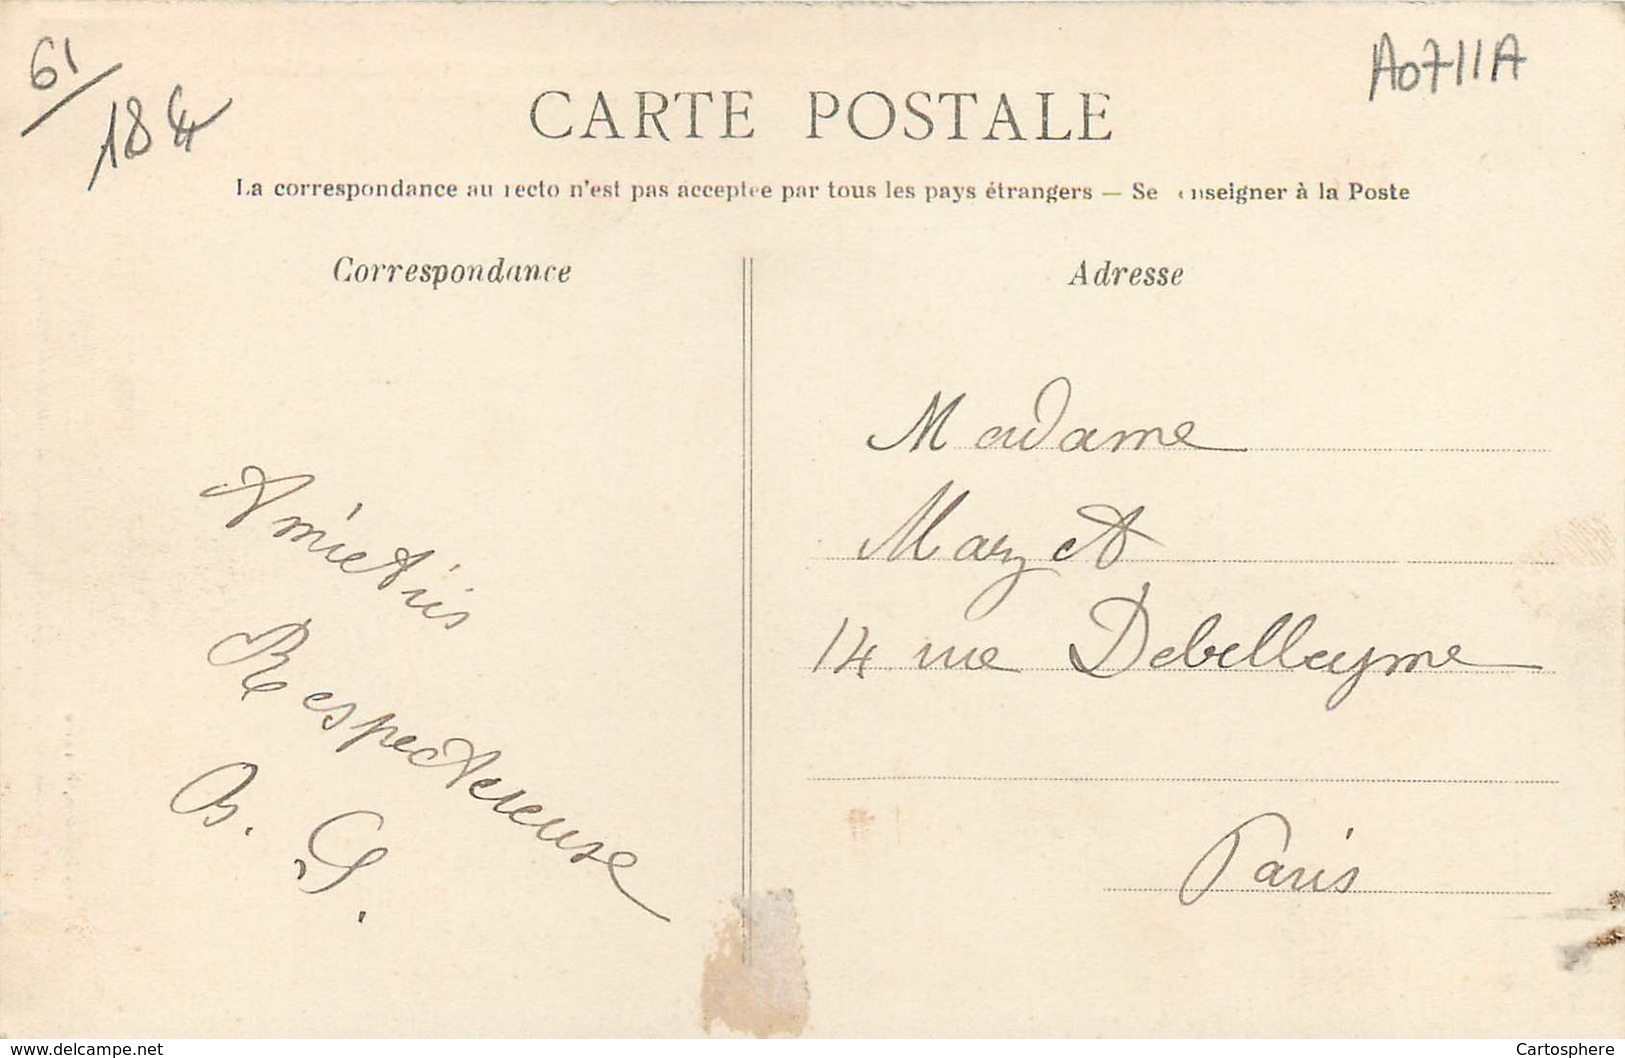 61/
18 €
A0711A
CARTE POSTALE
La correspondance au recto n'est pas acceptée par tous les pays étrangers — Se enseigner à la Poste
Correspondance
Adresse
Amictiés
Respectueuse
B. G.
Madame
Marzet
14 rue Debelleyme
Paris
www.delcampe.net
Cartosphere